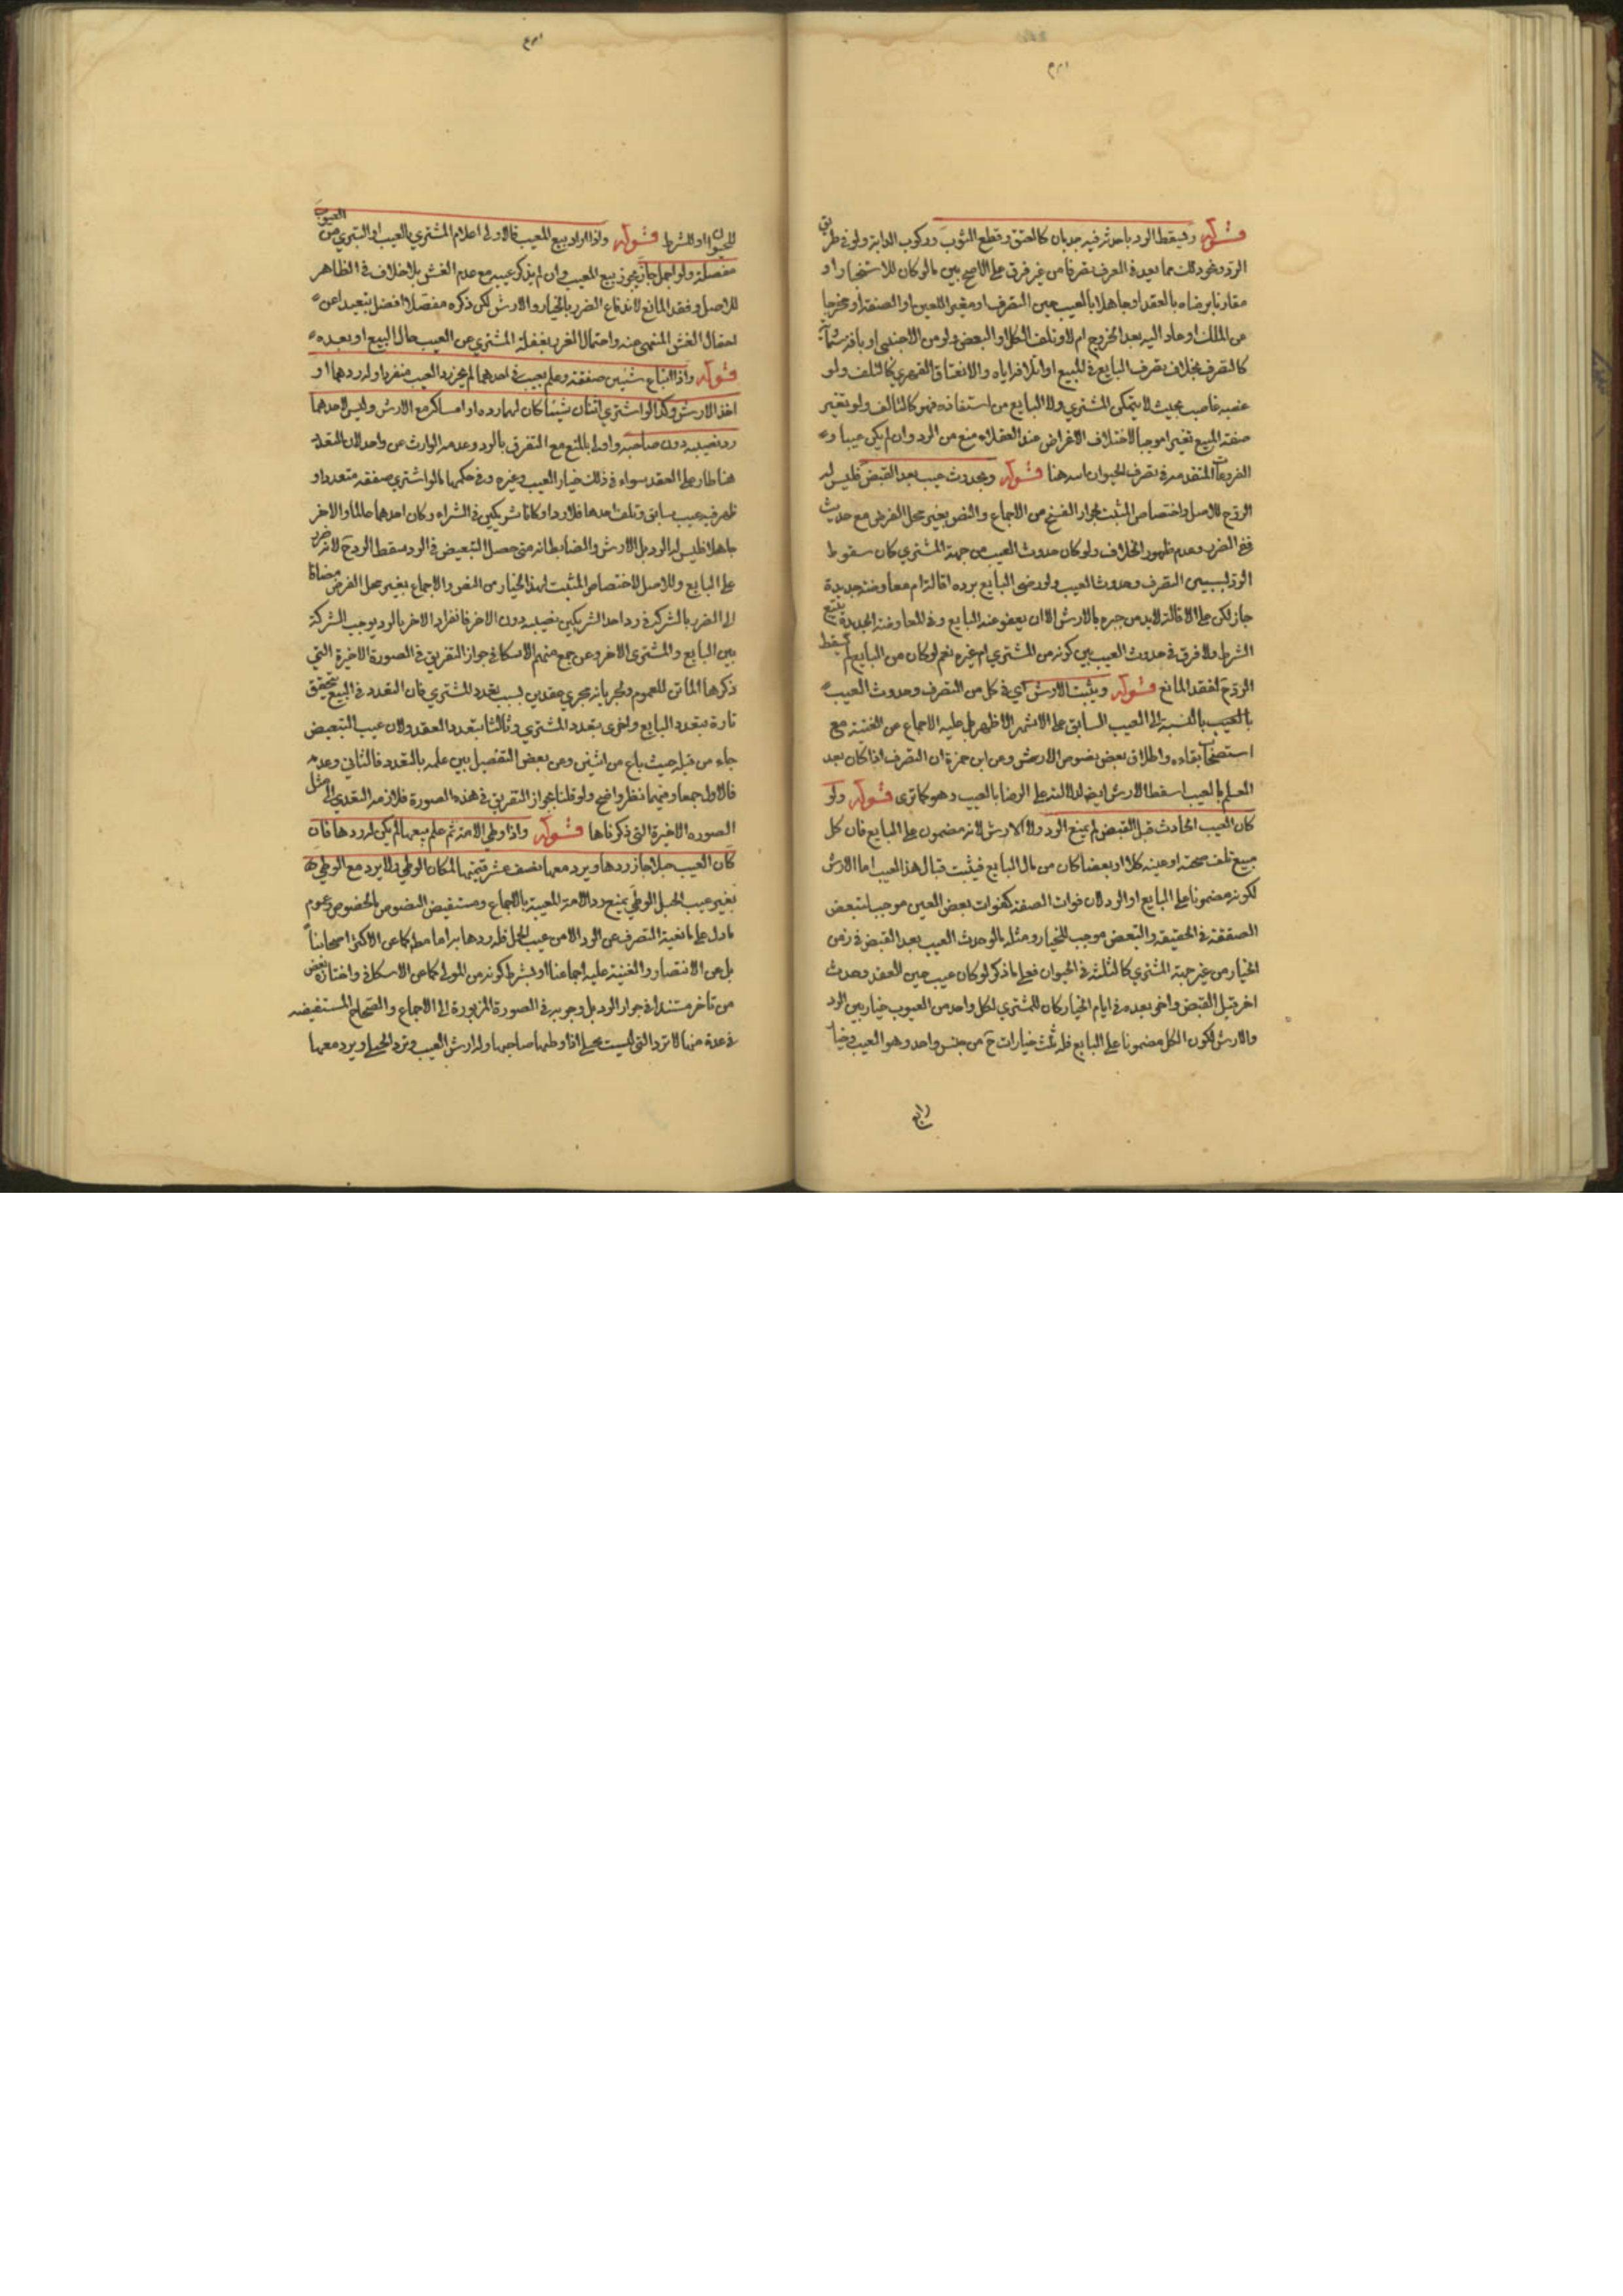 قوله ويسقط الرد باحداثه فيه حدثا كالعتق وقطع الثوب وركوب الدابة ولو في طريق
الرد ونحو ذلك مما يعد في العرف تصرفا من غير فرق على الاصح بين مالو كان للاستخبار او
مقارنا برضاه بالعقد او جاهلا بالعيب حين التصرف او مغيرا للعين او الصفة او مخرجا
عن الملك او عاد اليه بعد الخروج ام لا وتلف الكل او البعض ولو من الاجنبي او بافة سماوية
كالتصرف بخلاف تصرف البايع في المبيع او اتلافه اياه والانعتاق القهري كالتلف ولو
غصبه غاصب بحيث لا يتمكن المشتري ولا البايع من استنقاذه فهو كالتالف ولو تغير
صفة المبيع تغيرا موجبا لاختلاف الاغراض عند العقلاء منع من الرد وان لم يكن عيبا و
الفروعات المتقدمة في تصرف الحيوان هنا قوله وبحدوث عيب بعد القبض فليس له
الرد ح للاصل واختصاص المثبت لجواز الفسخ من الاجماع والنصوص بغير محل الفرض مع حديث
نفي الضرر وعدم ظهور الخلاف ولو كان حدوث العيب من جهة المشتري كان سقوط
الرد لسببين التصرف وحدوث العيب ولو رضي البايع برده اقالة ام معاوضة جديدة
جاز لكن على الاقالة لابد من جبره بالارش الا ان يعفو عنه البايع وفي المعاوضة الجديدة يتبع
الشرط ولا فرق في حدوث العيب بين كونه من المشتري ام غيره نعم لو كان من البايع لم يسقط
الرد ح لفقد المانع قوله ويثبت الارش اي في كل من التصرف وحدوث العيب
بالعيب بالنسبة الى العيب السابق على الاشهر الاظهر بل عليه الاجماع عن الغنية مع
استصحاب بقاءه واطلاق بعض نصوص الارش وعن ابن حمزة ان التصرف اذا كان بعد
العلم بالعيب اسقط الارش ايضا لدلالته على الرضا بالعيب وهو كما ترى قوله ولو
كان العيب الحادث قبل القبض لم يمنع الرد ولا الارش لانه مضمون على البايع فان كل
مبيع تلف صحته او عينه كلا او بعضا كان من مال البايع فيثبت قبال هذا العيب اما الارش
لكونه مضمونا على البايع او الرد لان فوات الصفة كفوات بعض العين موجب لتبعض
الصفقة في الحقيقة والتبعض موجب للخيار ومثله مالو حدث العيب بعد القبض في زمن
الخيار من غير جهة المشتري كالثلثة في الحيوان فعلى ماذكر لو كان عيب حين العقد وحدث
اخر قبل القبض واخر بعده في ايام الخيار كان للمشتري لكل واحد من العيوب خيار بين الرد
والارش لكون الكل مضمونا على البايع فله ثلث خيارات ح من جنس واحد وهو العيب وخيار
رابع
للحيوان او الشرط قوله واذا اراد بيع المعيب فالاولى اعلام المشتري بالعيب او التبري من العيوب
مفصلة ولو اجمل جاز يجوز بيع المعيب وان لم يذكر عيبه مع عدم الغش بلا خلاف في الظاهر
للاصل وفقد المانع لاندفاع الضرر بالخيار والارش لكن ذكره مفصلا افضل تبعيدا عن
احتمال الغش المنهي عنه واحتمال الغرر بغفلة المشتري عن العيب حال البيع او بعده
قوله واذا ابتاع شيئين صفقة وعلم بعيب في احدهما لم يجز رد العيب منفردا وله ردهما او
اخذ الارش وكذا لو اشترى اثنان شيئا كان لهما رده او امساكه مع الارش وليس لاحدهما
رد نصيبه دون صاحبه واولى بالمنع مع التفرق بالرد وعدمه الوارث عن واحد لان التعدد
هنا طار على العقد سواء في ذلك خيار العيب وغيره وفي حكمها مالو اشترى صفقة متعددا و
ظهر فيه عيب سابق وتلف احدها فلا رد او كانا شريكين في الشراء وكان احدهما عالما والاخر
جاهلا فليس له الرد بل الارش والضابط انه متى حصل التبعيض في الرد سقط الرد ح لانه ضرر
على البايع وللاصل لاختصاص المثبت لهذا الخيار من النص والاجماع بغير محل الفرض مضافا
الى الضرر بالشركة في رد احد الشريكين نصيبه دون الاخر فانفراد الاخر بالرد يوجب الشركة
بين البايع والمشتري الاخر وعن جمع منهم الاسكافي جواز التفريق في الصورة الاخيرة التي
ذكرها الماتن للعموم ولجريانه مجرى عقدين بسبب تعدد المشتري فان التعدد في البيع يتحقق
تارة بتعدد البايع واخرى بتعدد المشتري وثالثا بتعدد العقد ولان عيب التبعيض
جاء من قبله حيث باع من اثنين وعن بعض التفصيل بين علمه بالتعدد فالثاني وعدمه
فالاول جمعا وفيهما نظر واضح ولو قلنا بجواز التفريق في هذه الصورة فلا زمه التعدي الى مثل
الصورة الاخيرة التي ذكرناها قوله واذا وطي الامة ثم علم بعيبها لم يكن له ردها فان
كان العيب حبلا جاز ردها ويرد معها نصف عشر قيمتها لمكان الوطي ولا يرد مع الوطي
بغير عيب الحبل الوطي يمنع رد الامة المعيبة بالاجماع ومستفيض النصوص بالخصوص وعموم
مادل على مانعية التصرف عن الرد الا من عيب الحمل فله ردها به اما مطلقا كما عن الاكثر اصحابنا
بل عن الانتصار والغنية عليه اجماعنا او بشرط كونه من المولى كما عن الاسكافي واختاره بعض
من تاخر مستندا في جواز الرد بل وجوبه في الصورة المزبورة الى الاجماع والصحاح المستفيضه
في عدة منها لا ترد التي ليست بحبلى اذا وطيها صاحبها وله ارش العيب وترد الحبلى ويرد معها